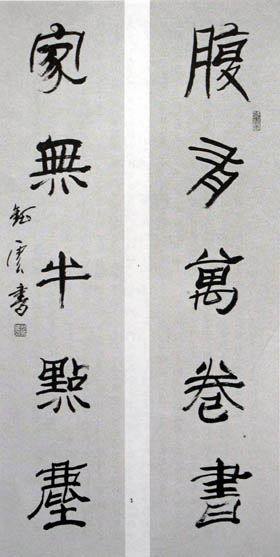 腹有萬卷書
家無半點塵
雲書